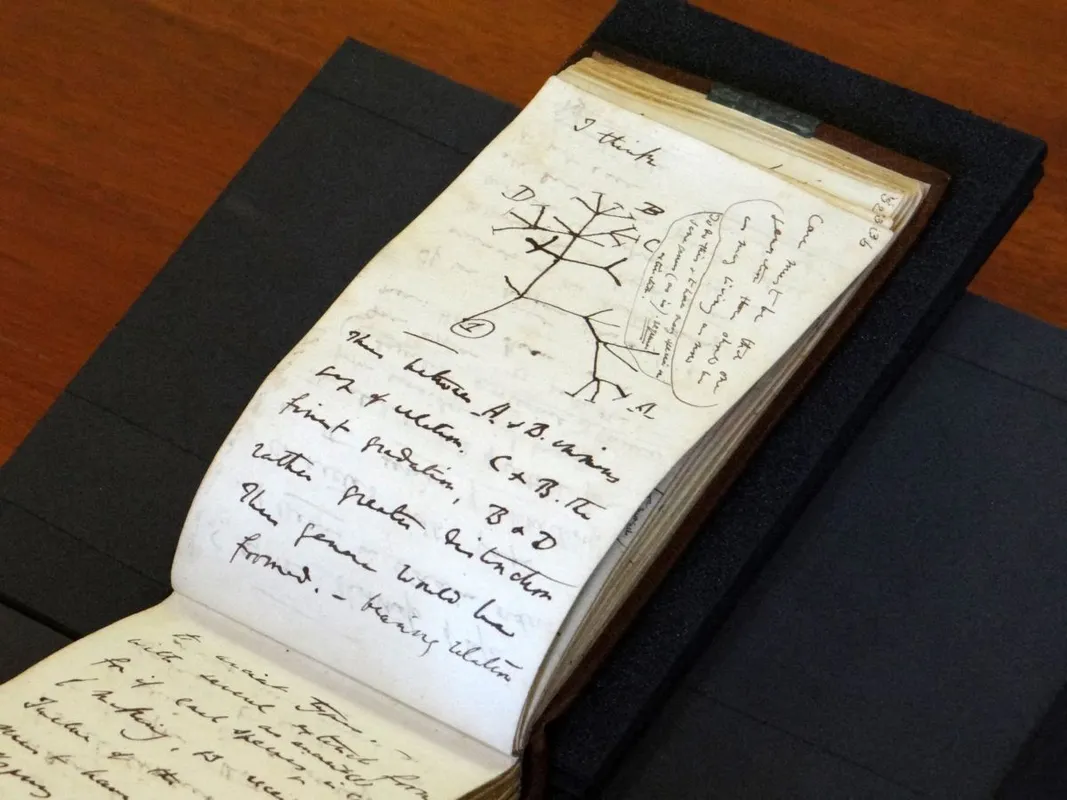 I think
D
B
C
1
A
Case must be that one
generation then should be
as many living as now
To do this & to have many species in
same genus (as is). requires
extinction.
Thus between A. & B. immens
gap of relation. C & B. The
finest gradation, B & D
rather greater distinction
Thus genera would be
formed. — bearing relation
to ancient types. —
with several extinct forms
for if each species
making, 13
Twelve of the